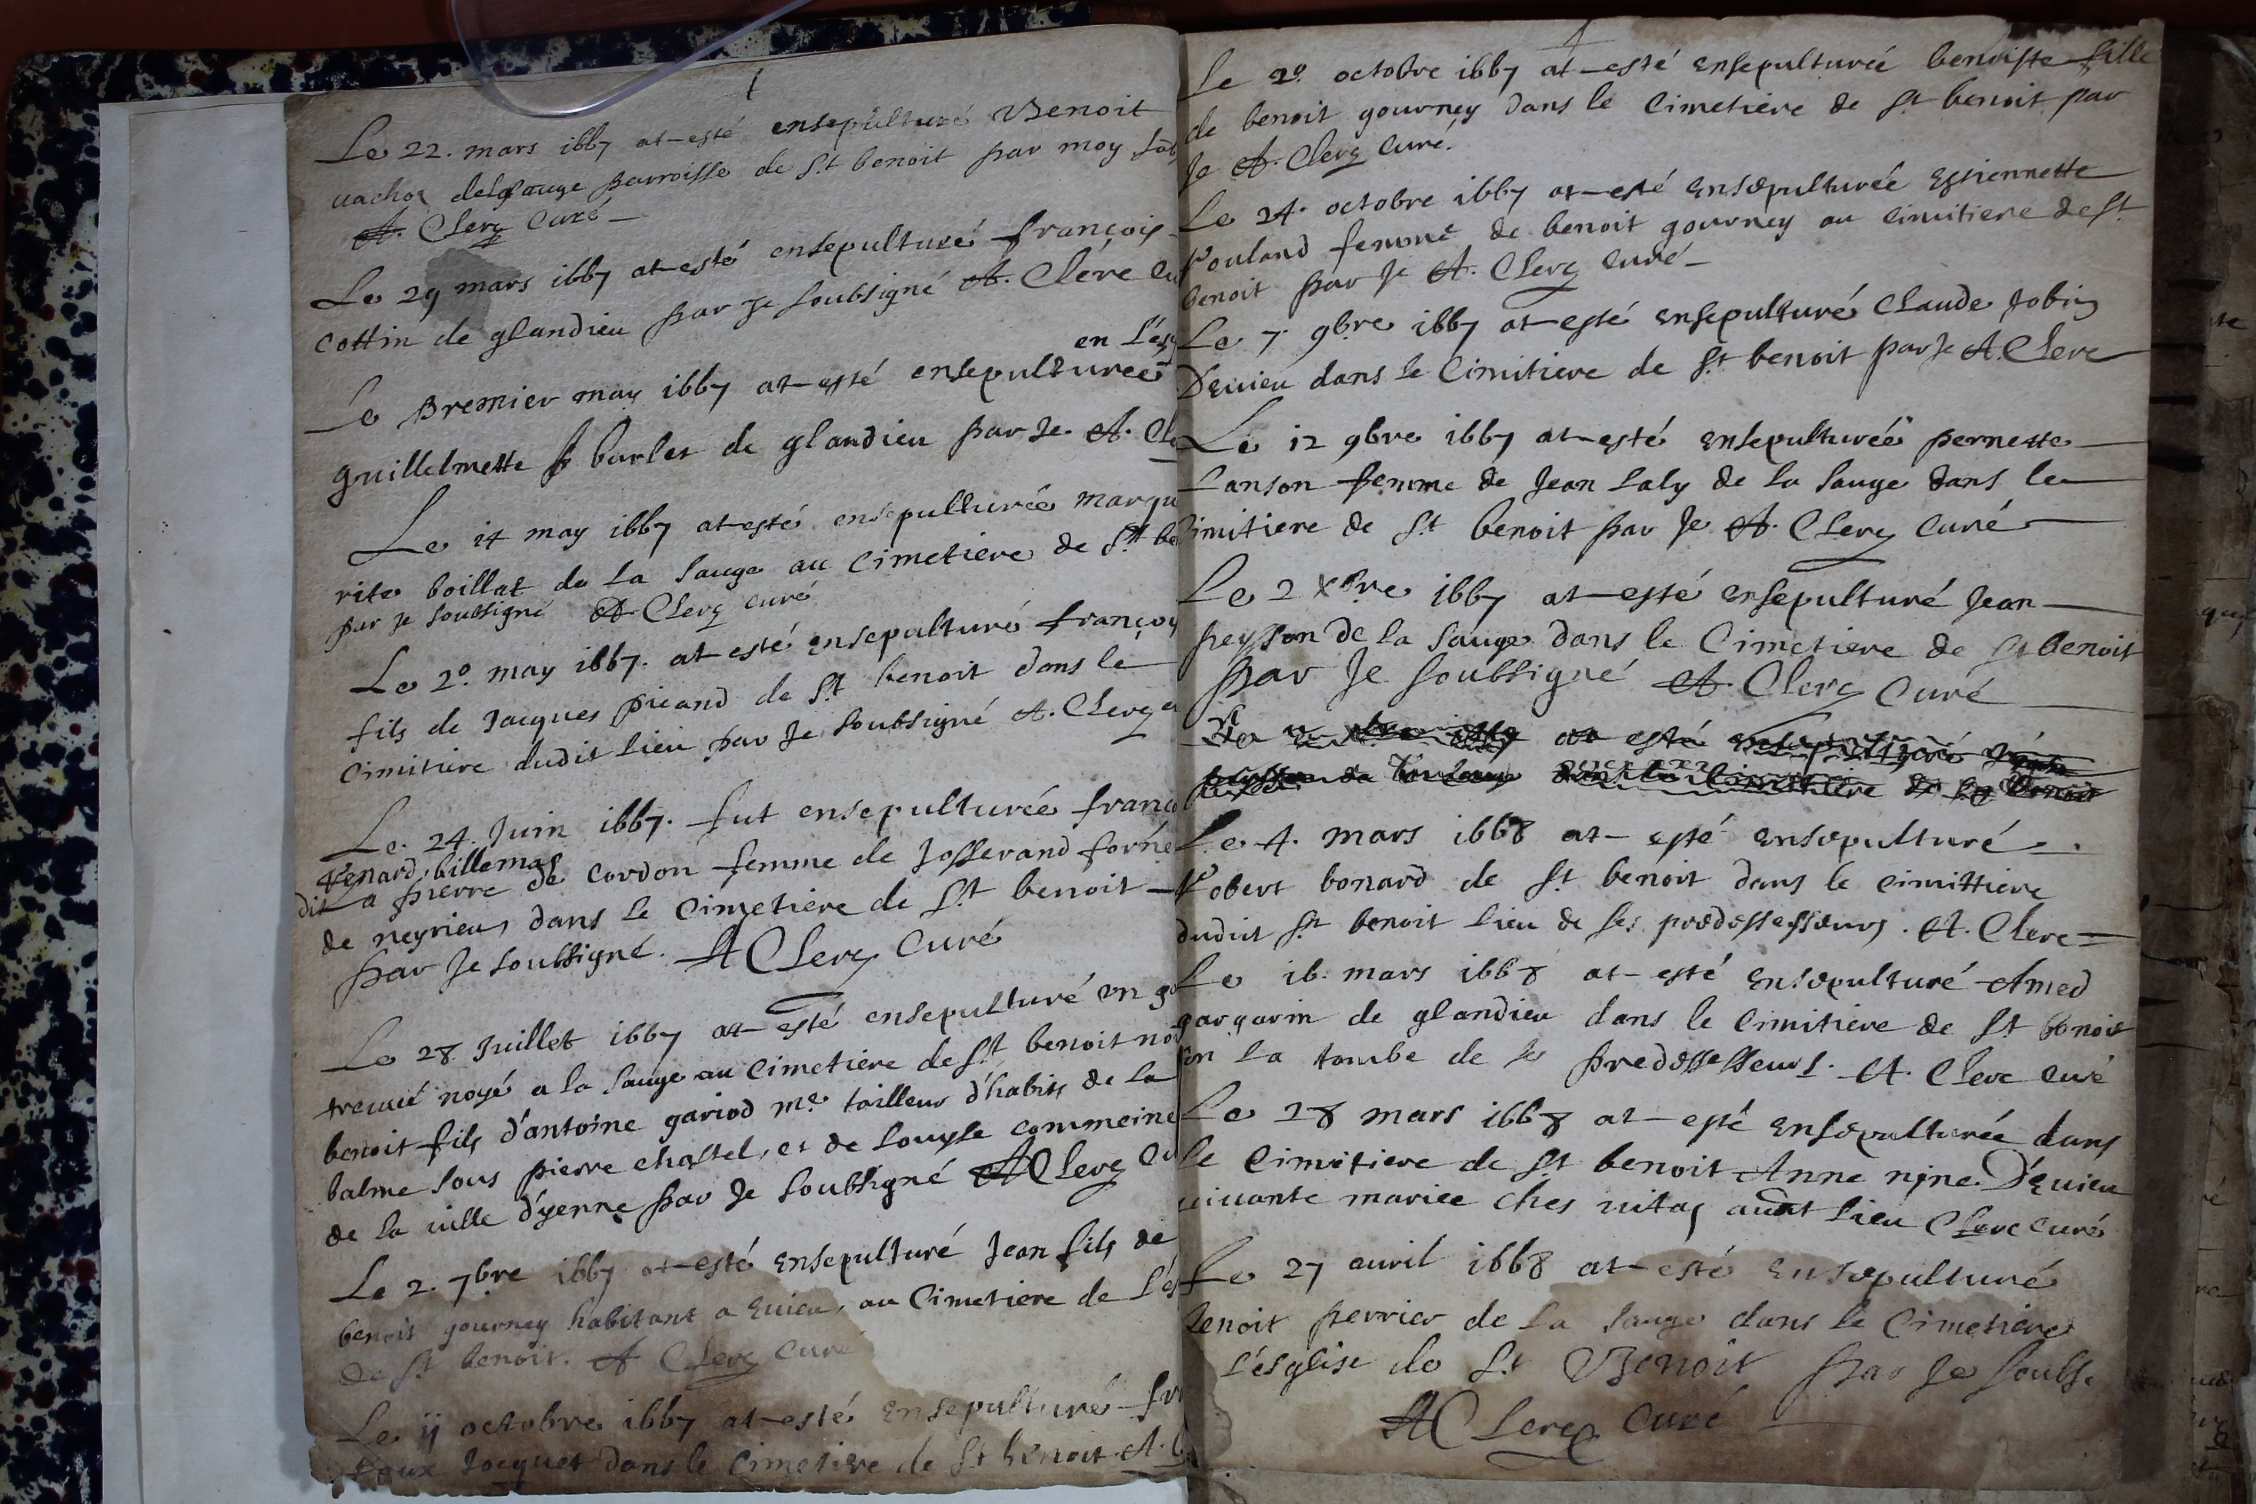 Le 22. mars 1667 at esté ensepulturé Benoit
vachoz delasauge parroisse de St benoit par moy
A. Clerq Curé
Le 29 mars 1667 at esté ensepulturé françois
cottin de glandieu par Je soubsigné A. Clerc Cu
en L'es
Le premier may 1667 at esté ensepulturée
guillelmette barlet de glandieu par Je A. Cle
Le 14 may 1667 at esté ensepulturée margu
rite boillat de la sauge au Cimetiere de St be
par Je soubsigné A Clerq curé
Le 20. may 1667. at esté ensepulturé françoy
fils de Jacques picand de St benoit dans le
Cimitiere dudit lieu par Je soubsigné A. Clerq
Le 24. Juin 1667. fut ensepulturée franco
renard billemas
dit a pierre de cordon femme de Josserand forne
de neyrieu, dans le Cimetiere de St benoit
par Je soubsigné. A Clerq Curé
Le 28 Juillet 1667 at esté ensepulturé un
treuué noyé a la sauge au Cimetiere de St benoit
benoit fils d'antoine gariod me tailleur d'habits de la
balme sous pierre chastel, et de Louyse commeine
de la uille d'yenne par Je soubsigné A Clerq Cu
Le 2. 7bre 1667 at esté ensepulturé Jean fils de
benoit gourney habitant a Euieu, au Cimetiere de L'es
de St benoit. A Clerq Curé
Le 11 octobre 1667 at esté ensepulturé fr
Roux Jacquet dans le Cimetiere de St benoit A.
Le 20 octobre 1667 at esté ensepulturée benoiste fille
de benoit gourney dans le Cimetiere de St benoit par
Je A. Clerq Curé.
Le 24. octobre 1667 at esté ensepulturée Estiennette
Rouland femme de benoit gourney au Cimitiere de St
benoit par Je A. Clerq Curé
Le 7. 9bre 1667 at esté ensepulturé Claude Jobin
D'Euieu dans le Cimitiere de St benoit par Je A. Clerc
Le 12 9bre 1667 at esté ensepulturée pernette
Lanson femme de Jean Laly de la sauge dans le
Cimitiere de St benoit par Je A. Clerq Curé
Le 2 Xbre 1667 at esté ensepulturé Jean
peysson de la sauge dans le Cimetiere de St benoit
par Je soubsigné A. Clerq Curé
Le at esté ensepulturé
peysson de la sauge dans le Cimitiere de St benoit
Le 4. mars 1668 at esté ensepulturé
Robert bonard de St benoit dans le Cimittiere
dudit St benoit lieu de ses predessesseurs. A. Clerc
Le 16. mars 1668 at esté ensepulturé Amed
garguarin de glandieu dans le Cimitiere de St benoit
en la tombe de ses predessesseurs. A. Clerc Curé
Le 28 mars 1668 at esté ensepulturée dans
le Cimitiere de St benoit Anne nine D'Euieu
uiuante mariee ches uitoz audit lieu Clerc Curé
Le 27 auril 1668 at esté ensepulturé
benoit perrier de la sauge dans le Cimetiere
L'esglise de St Benoit par Je soubs.
A Clerq Curé